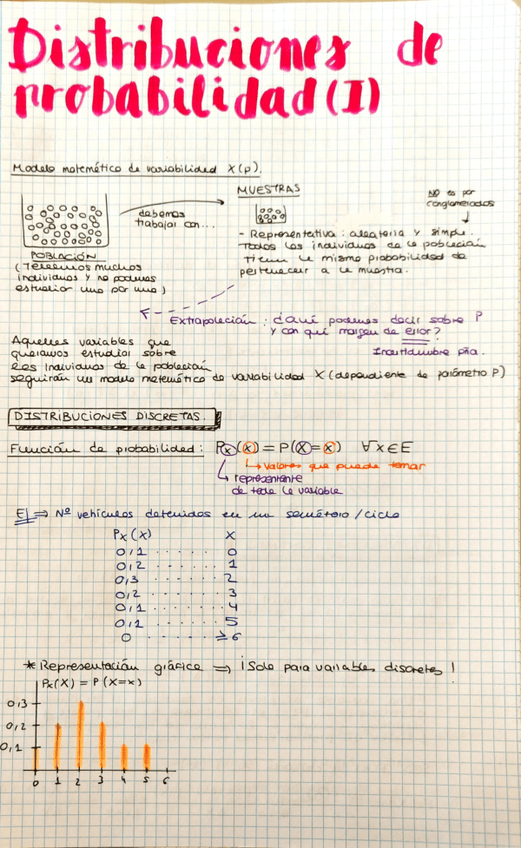 Distribuciones de
probabilidad (I)
Modelo matemático de variabilidad X(p).
MUESTRAS
NO es por
conglomerados
debemos
trabajar con...
- Representativa: aleatoria y simple.
Todos los individuos de la población
tienen la misma probabilidad de
pertenecer a la muestra.
POBLACIÓN
(Tenemos muchos
individuos y no podemos
estudiar uno por uno)
Extrapolación: ¿Qué podemos decir sobre P
y con qué margen de error?
Incertidumbre
Aquellas variables que
queramos estudiar sobre
los individuos de la población
seguirán un modelo matemático de variabilidad X (dependiente de parámetro P)
DISTRIBUCIONES DISCRETAS.
Función de probabilidad: Px(x) = P(X=x) ∀x∈E
valores que puede tomar
representante
de toda la variable
Ej ⇒ Nº vehículos detenidos en un semáforo/ciclo
Px(x) X
0,1 ..... 0
0,2 ..... 1
0,3 ..... 2
0,2 ..... 3
0,1 ..... 4
0,1 ..... 5
0 ..... ≥6
* Representación gráfica ⇒ ¡Solo para variables discretas!
Px(X) = P(X=x)
0,3
0,2
0,1
0 1 2 3 4 5 6